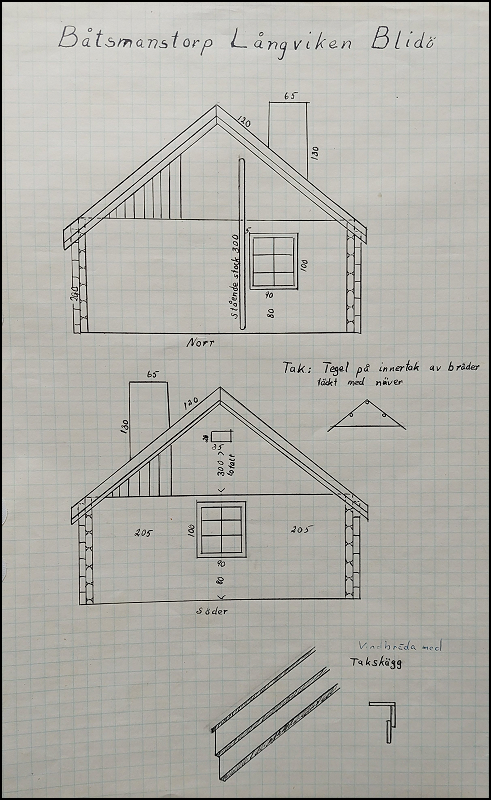 Båtsmanstorp Långviken Blidö
65
120
130
5
Stående stock 300
100
200
90
80
Norr
Tak: Tegel på innertak av bräder
täckt med näver
65
120
130
35
300
totalt
205
100
205
90
80
Söder
Vindbräda med
Takskägg